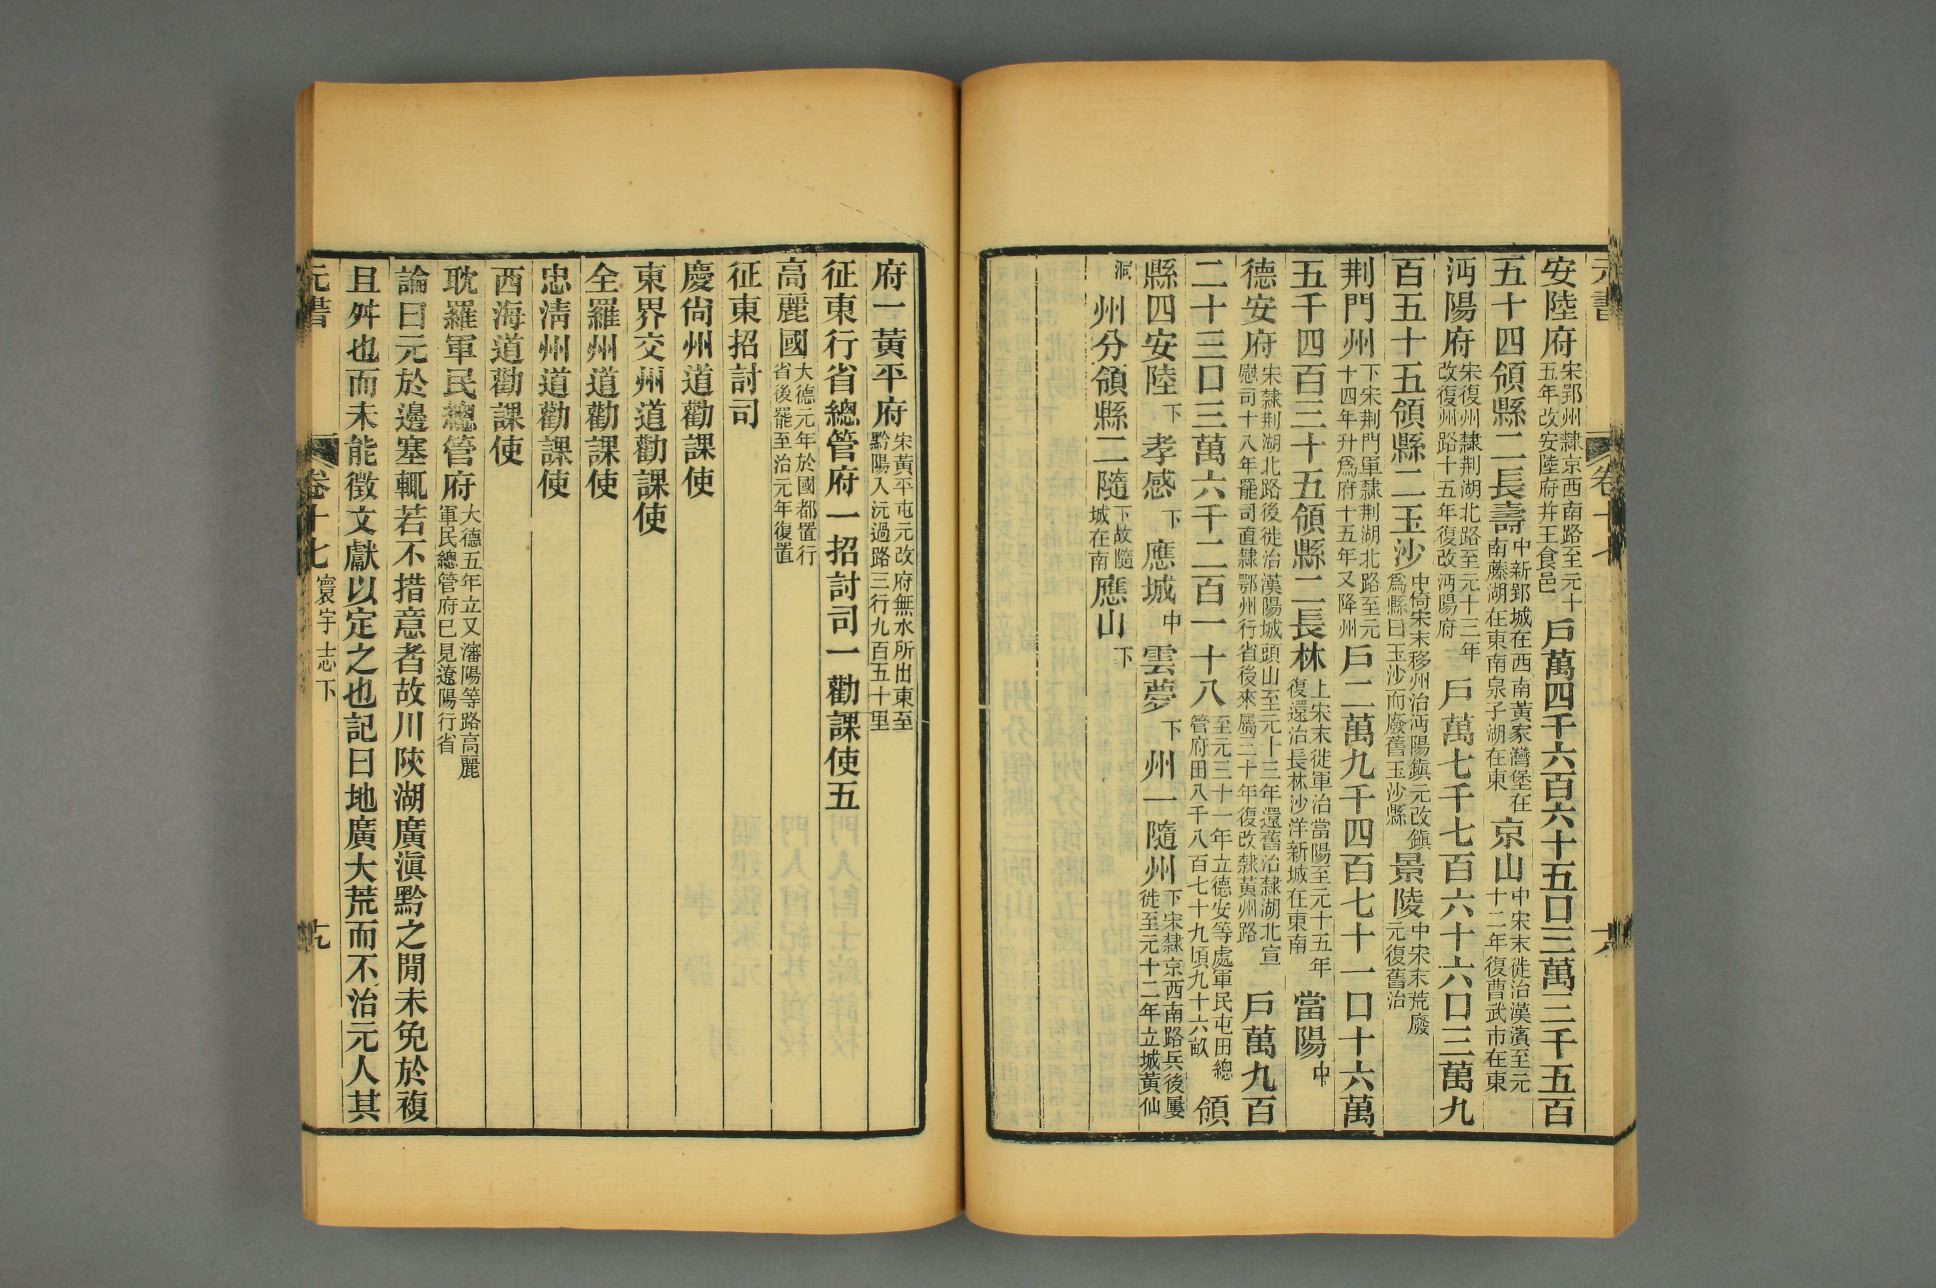 元書 卷十七 十八
安陸府宋郢州隸京西南路至元十五年改安陸府并王食邑戶萬四千六百六十五口三萬三千五百
五十四領縣二長壽中新郢城在西南黃家灣堡在南藤湖在東南泉子湖在東京山中宋末徙治漢濱至元十二年復曹武市在東
沔陽府宋復州隸荆湖北路至元十三年改復州路十五年復改沔陽府戶萬七千七百六十六口三萬九
百五十五領縣二玉沙中倚宋末移州治沔陽鎮元改鎮爲縣曰玉沙而廢舊玉沙縣景陵中宋末荒廢元復舊治
荆門州下宋荆門軍隸荆湖北路至元十四年升爲府十五年又降州戶二萬九千四百七十一口十六萬
五千四百三十五領縣二長林上宋末徙軍治當陽至元十五年復還治長林沙洋新城在東南當陽中
德安府宋隸荆湖北路後徙治漢陽城頭山至元十三年還舊治隸湖北宣慰司十八年罷司直隸鄂州行省後來屬三十年復改隸黃州路戶萬九百
二十三口三萬六千二百一十八至元三十一年立德安等處軍民屯田總管府田八千八百七十九頃九十六畝領
縣四安陸下孝感下應城中雲夢下州一隨州下宋隸京西南路兵後屢徙至元十二年立城黃仙
洞州分領縣二隨下故隨城在南應山下
府一黃平府宋黃平屯元改府無水所出東至黔陽入沅過路三行九百五十里
征東行省總管府一招討司一勸課使五
高麗國大德元年於國都置行省後罷至治元年復置
征東招討司
慶尙州道勸課使
東界交州道勸課使
全羅州道勸課使
忠淸州道勸課使
西海道勸課使
耽羅軍民總管府大德五年立又瀋陽等路高麗軍民總管府已見遼陽行省
論曰元於邊塞輒若不措意者故川陝湖廣滇黔之閒未免於複
且舛也而未能徵文獻以定之也記曰地廣大荒而不治元人其
元書 卷十七 寰宇志下 十九